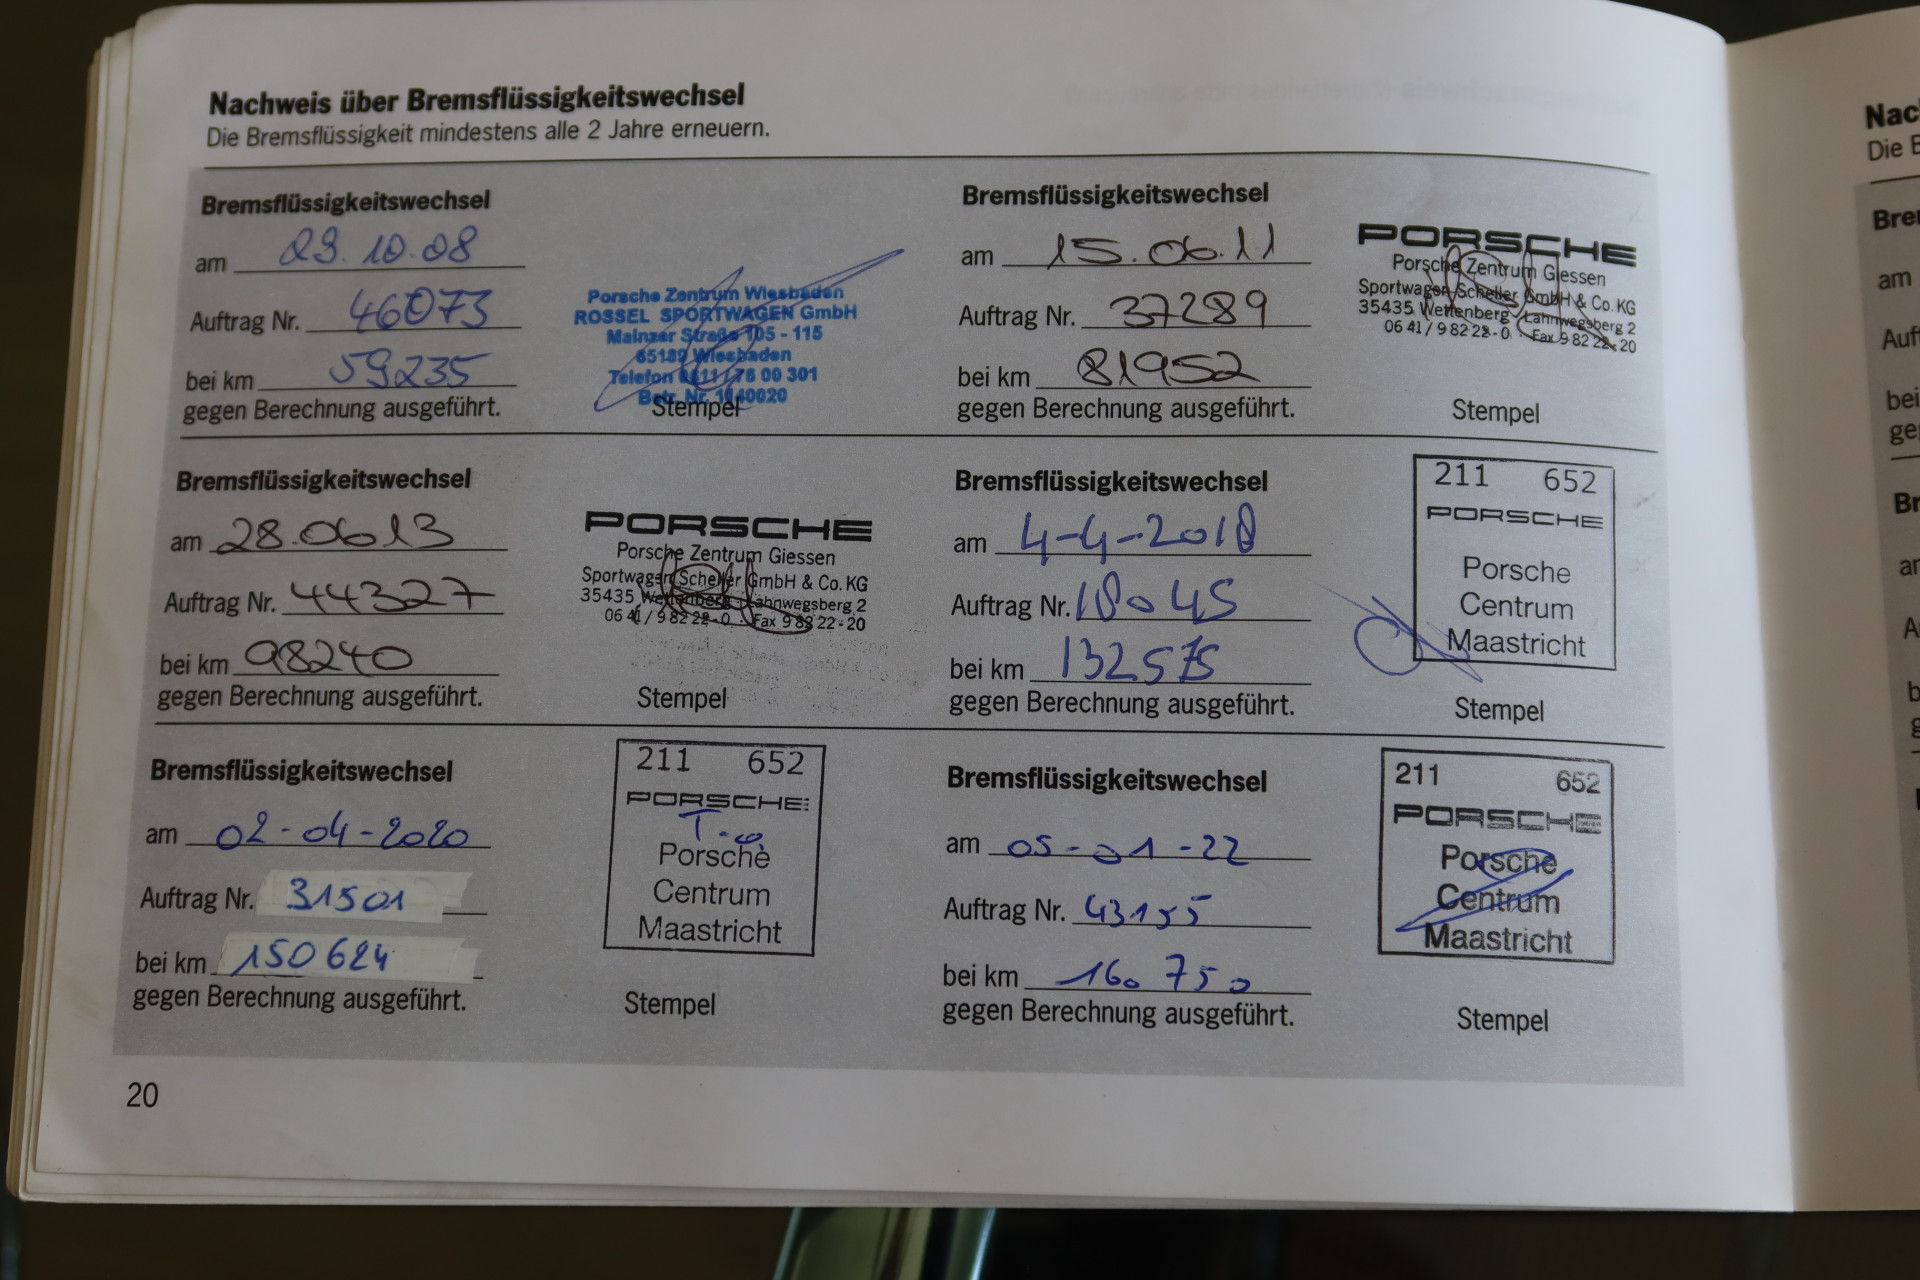 Nachweis über Bremsflüssigkeitswechsel
Die Bremsflüssigkeit mindestens alle 2 Jahre erneuern.
Bremsflüssigkeitswechsel
am 29.10.08
Auftrag Nr. 46073
bei km 59235
gegen Berechnung ausgeführt.
Porsche Zentrum Wiesbaden
ROSSEL SPORTWAGEN GmbH
Mainzer Straße 105 - 115
65189 Wiesbaden
Telefon 0611 / 76 00 301
Betr. Nr. 1040020
Stempel
Bremsflüssigkeitswechsel
am 15.06.11
Auftrag Nr. 37289
bei km 81952
gegen Berechnung ausgeführt.
PORSCHE
Porsche Zentrum Giessen
Sportwagen Scheller GmbH & Co. KG
35435 Wettenberg · Lahnwegsberg 2
06 41 / 9 82 22 - 0 · Fax 9 82 22 - 20
Stempel
Bremsflüssigkeitswechsel
am 28.06.13
Auftrag Nr. 44327
bei km 98240
gegen Berechnung ausgeführt.
PORSCHE
Porsche Zentrum Giessen
Sportwagen Scheller GmbH & Co. KG
35435 Wettenberg · Lahnwegsberg 2
06 41 / 9 82 22 - 0 · Fax 9 82 22 - 20
Stempel
Bremsflüssigkeitswechsel
am 4-4-2018
Auftrag Nr. 18045
bei km 132575
gegen Berechnung ausgeführt.
211 652
PORSCHE
Porsche
Centrum
Maastricht
Stempel
Bremsflüssigkeitswechsel
am 02-04-2020
Auftrag Nr. 31501
bei km 150624
gegen Berechnung ausgeführt.
211 652
PORSCHE
Porsche
Centrum
Maastricht
Stempel
Bremsflüssigkeitswechsel
am 05-01-22
Auftrag Nr. 43155
bei km 160750
gegen Berechnung ausgeführt.
211 652
PORSCHE
Porsche
Centrum
Maastricht
Stempel
20
Nac
Die B
Brem
am
Auft
bei
ge
Br
am
A
b
g